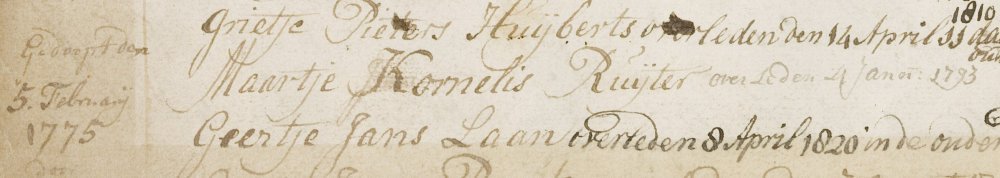 1810
Grietje Pieters Huijberts overleden den 14 April
Gedoopt den
Maartje Kornelis Ruijter overleden 21 Janu: 1793
5. Februarij
1775
Geertje Jans Laan overleden 8 April 1820 in de ouder